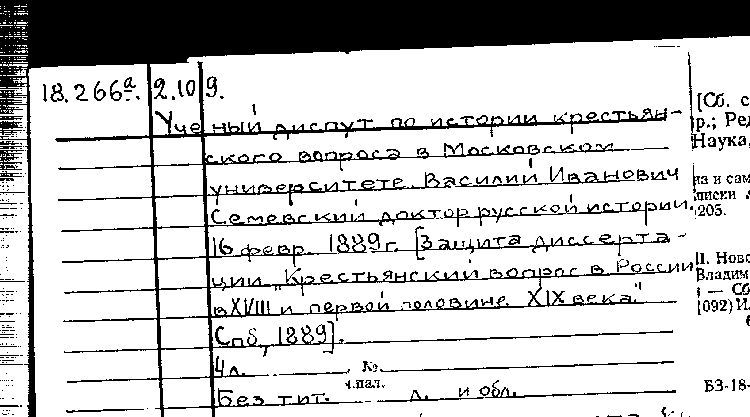 18.266а. 2.10 9.
Ученый диспут по истории крестьян-
ского вопроса в Московском
университете. Василий Иванович
Семевский доктор русской истории.
16 февр. 1889 г. [Защита диссерта-
ции „Крестьянский вопрос в России
в XVIII и первой половине XIX века."
Спб, 1889].
4 л. №
Без тит. л. и обл.
[Сб. с
р.; Ред
Наука,
на и сам
205.
П. Ново
Владим
— Сб
(092) И
БЗ-18-